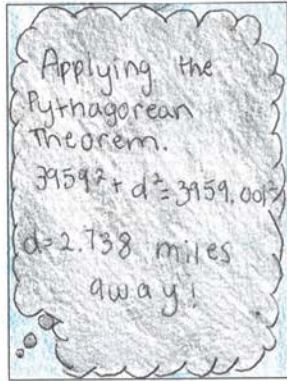 Applying the
Pythagorean
Theorem.
3959² + d² = 3959.001²
d=2.738 miles
away!